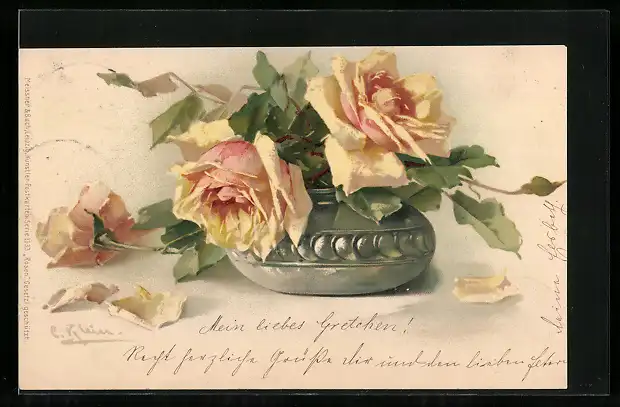 Mein liebes Gretchen!
Recht herzliche Grüße Dir und den lieben Eltern
deine
C. Klein.
Meissner & Buch, Leipzig, Künstler-Postkarten, Serie "Rosen" Gesetzl. geschützt.